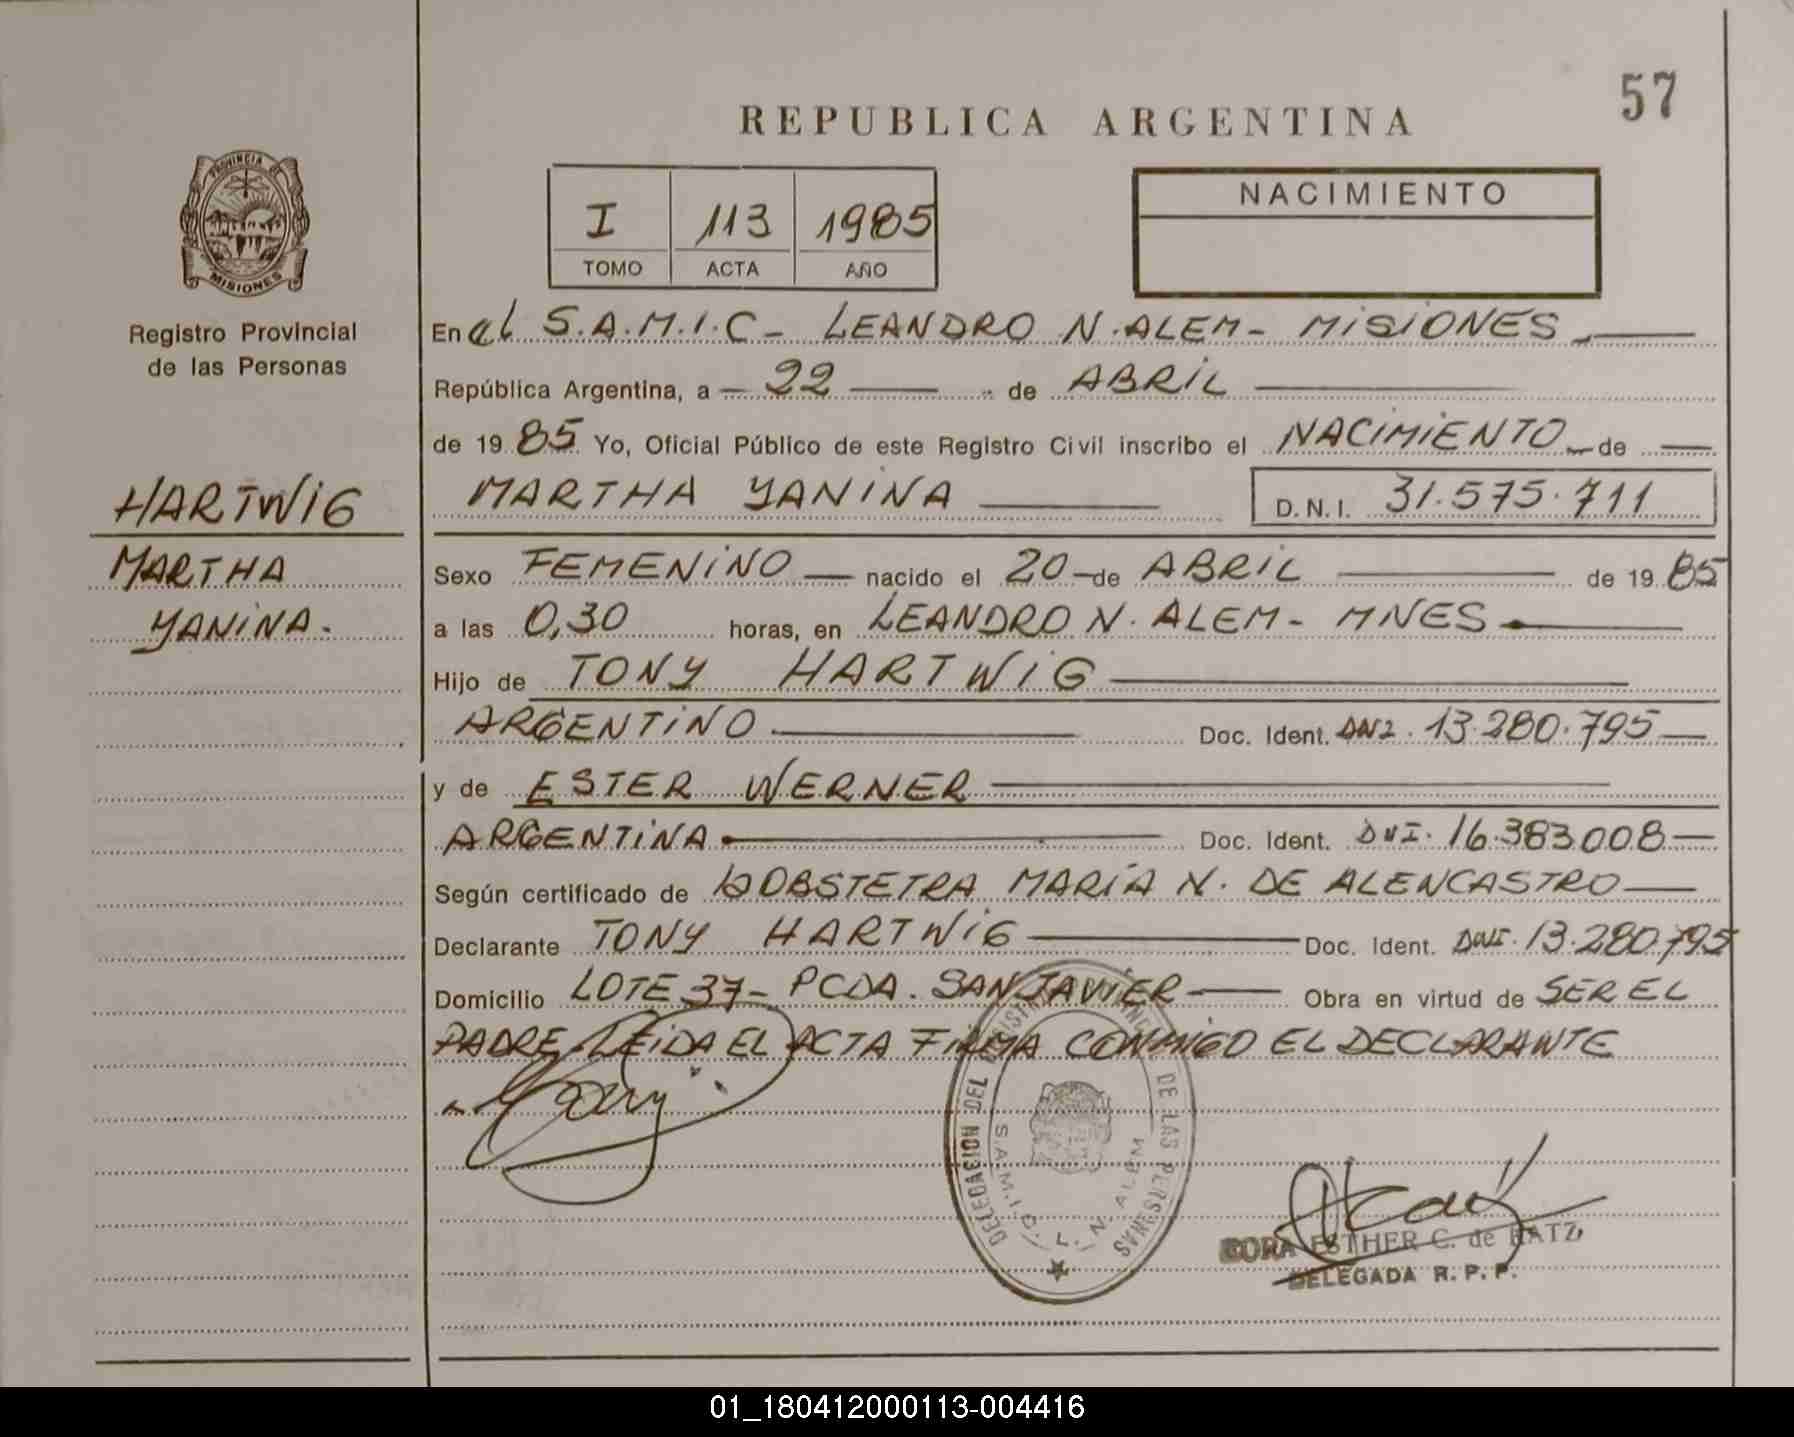 57
REPUBLICA ARGENTINA
PROVINCIA DE
MISIONES
Registro Provincial
de las Personas
I 113 1985
TOMO ACTA AÑO
NACIMIENTO
En el S.A.M.I.C - LEANDRO N. ALEM - MISIONES
República Argentina, a 22 de ABRIL
de 19 85 Yo, Oficial Público de este Registro Civil inscribo el NACIMIENTO de
MARTHA YANINA D.N.I. 31.575.711
HARTWIG
MARTHA
YANINA.
Sexo FEMENINO nacido el 20 de ABRIL de 19 85
a las 0,30 horas, en LEANDRO N. ALEM - MNES
Hijo de TONY HARTWIG
ARGENTINO Doc. Ident. DNI. 13.280.795
y de ESTER WERNER
ARGENTINA Doc. Ident. DNI. 16.383.008
Según certificado de la OBSTETRA MARÍA N. DE ALENCASTRO
Declarante TONY HARTWIG Doc. Ident. DNI. 13.280.795
Domicilio LOTE 37 - PCDA. SAN JAVIER Obra en virtud de SER EL
PADRE LEIDA EL ACTA FIRMA CONMIGO EL DECLARANTE
DELEGACION DEL REGISTRO PROVINCIAL DE LAS PERSONAS
S.A.M.I.C. L. N. ALEM
ESTHER C. de RATZ
DELEGADA R. P. P.
01_180412000113-004416